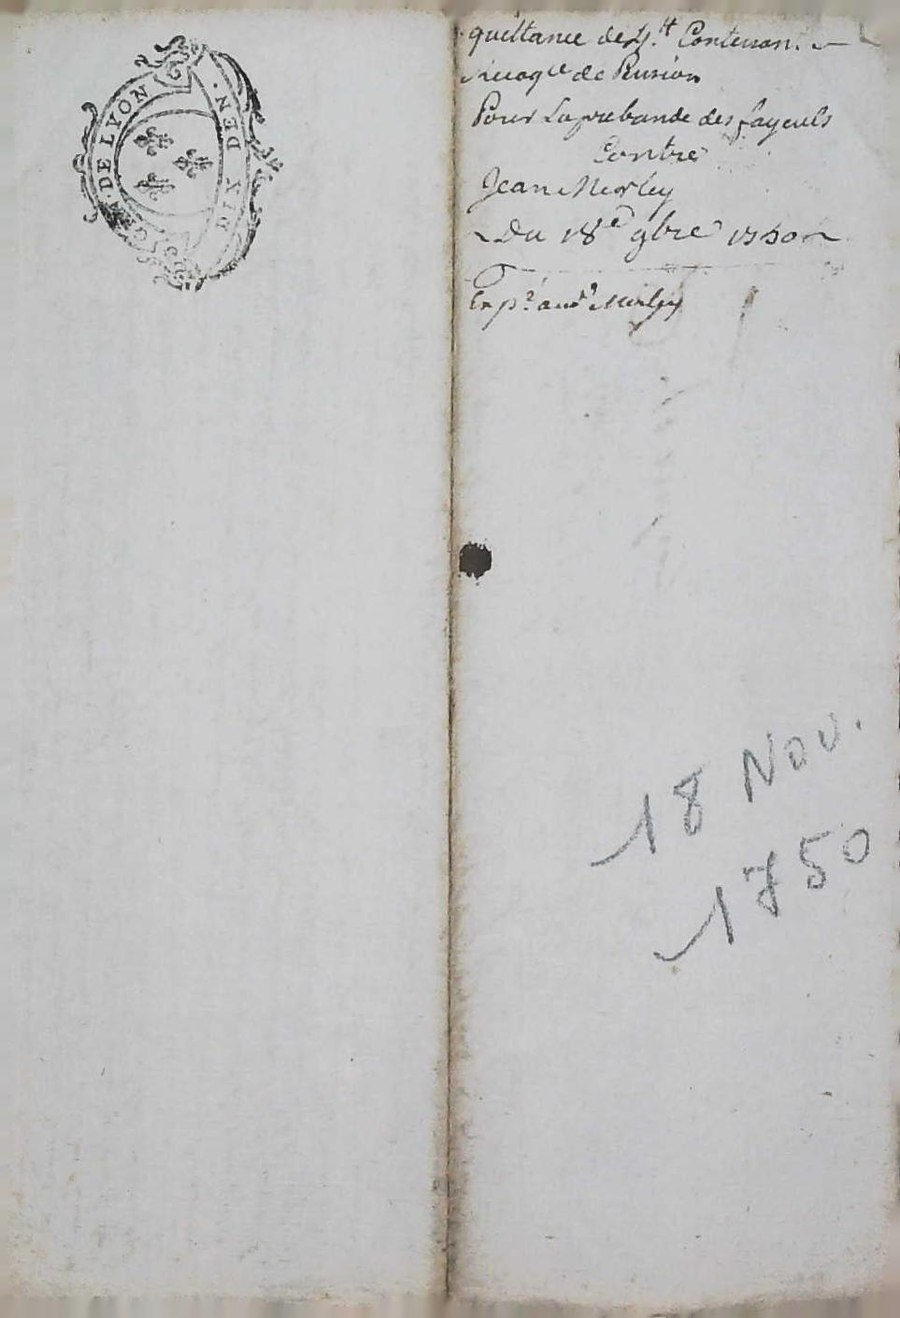 GEN. DE LYON
DIX DEN.
quittance de Contenan.
de Pension
Pour La prebande des fayeuls
Contre
Jean Merley
Du 18e 9bre 1750
Exp.
18 Nov.
1750